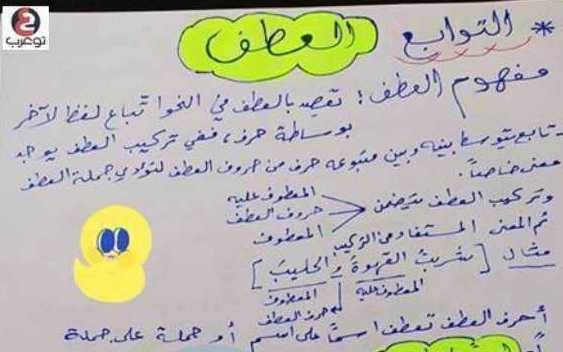 توعرب
* التوابع العطف
مفهوم العطف: نقصد بالعطف في النحو اتباع لفظ لآخر
بوساطة حرف، ففي تركيب العطف يوجد
- تابع يتوسط بينه وبين متبوعه حرف من حروف العطف لتؤدي جملة العطف
معنى خاصاً.
وتركيب العطف يتضمن
المعطوف عليه
حروف العطف
المعطوف
ثم المعنى المستفاد من التركيب
مثال [شربتُ القهوةَ والحليبَ]
المعطوف عليه
المعطوف
حرف العطف
أحرف العطف تعطف اسماً على اسم أو جملة على جملة